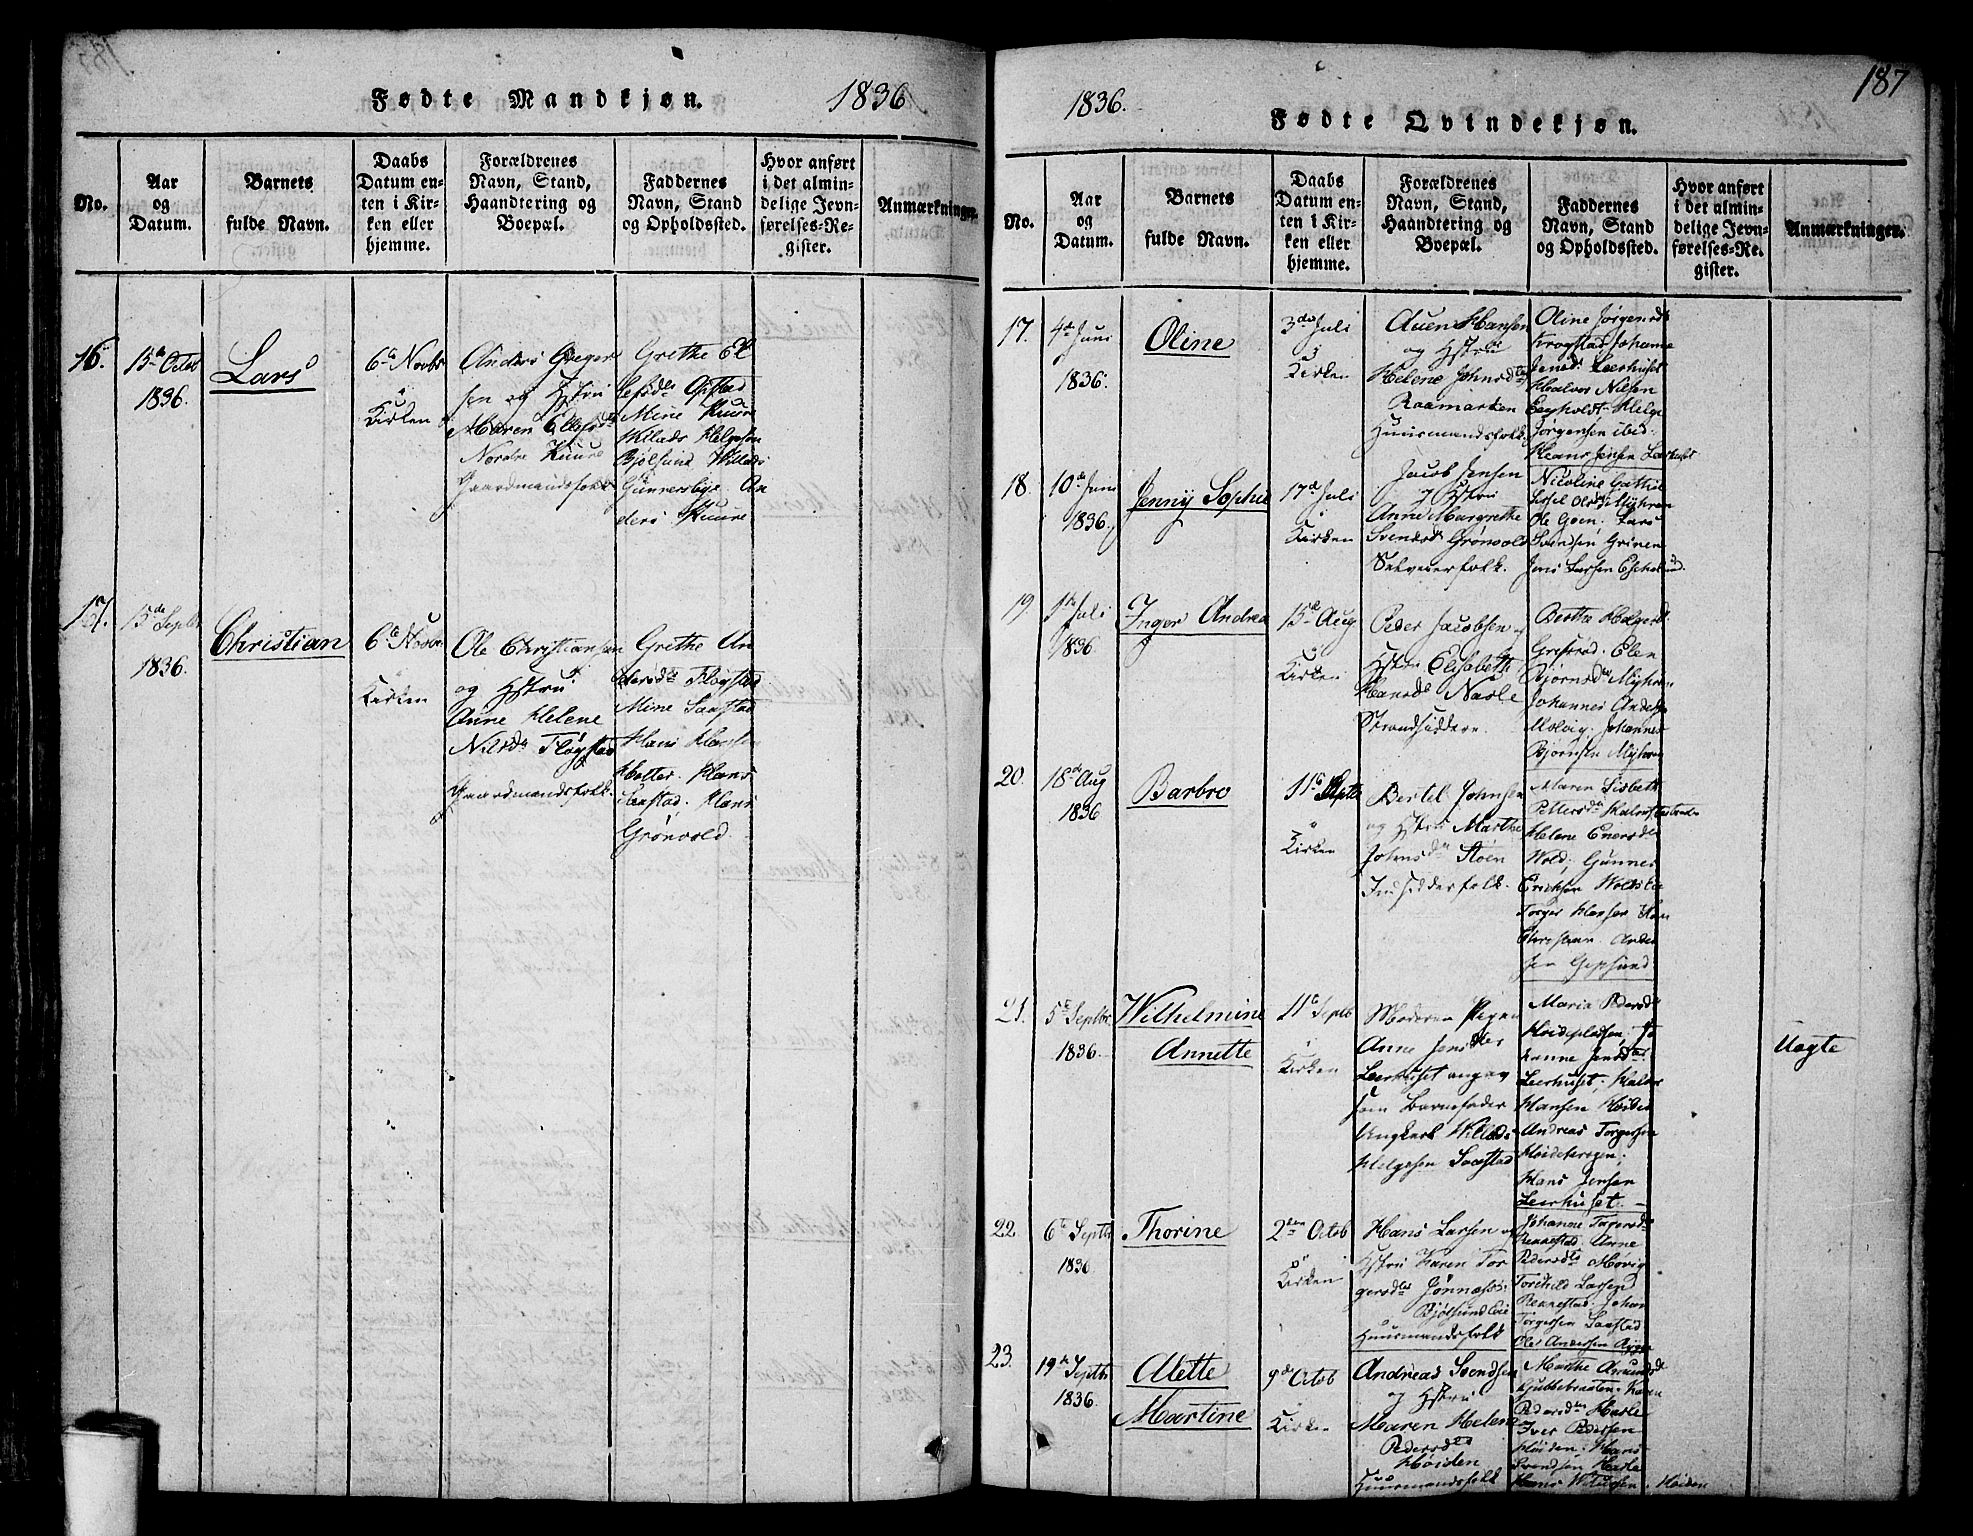 Fødte Mandkjøn.
1836
No.
Aar
og
Datum.
Barnets
fulde Navn.
Daabs
Datum en-
ten i Kir-
ken eller
hjemme.
Forældrenes
Navn, Stand,
Haandtering og
Boepæl.
Faddernes
Navn, Stand
og Opholdssted.
Hvor anført
i det almin-
delige Jevn-
førelses-Re-
gister.
Anmærkninger.
16.
15de Octob
1836.
Lars
6te Novbr
i
Kirken
Anders Greger
sen og Hstru
Maren Ellefsd
Nordre Kuure
Gaardmandsfolk
Grethe El
lefsdr Opstad
Mine Kuure
Willads Helgesen
Bjølsund Willads
Gunnersbye. An
ders Kuure
17.
15de Septbr
1836.
Christian
6te Novbr
i
Kirken
Ole Christiansen
og Hstru
Anne Helene
Nilsdr Fløgstad
Gaardmandsfolk.
Grethe An
dersdr Fløgstad
Mine Saastad
Hans Hansen
Hans
Saastad. Hans
Grønvold.
187
1836.
Fødte Qvindekjøn.
No.
Aar
og
Datum.
Barnets
fulde Navn.
Daabs
Datum en-
ten i Kir-
ken eller
hjemme.
Forældrenes
Navn, Stand,
Haandtering og
Boepæl.
Faddernes
Navn, Stand
og Opholdssted.
Hvor anført
i det almin-
delige Jevn-
førelses-Re-
gister.
Anmærkninger.
17.
4de Juni
1836.
Oline
3die Juli
i
Kirken
Auen Hansen
og Hstru
Helene Johnsdtr
Raamarken
Huusmandsfolk.
Oline Jørgensd
Krogstad Johanne
Jensd Leerhuset
Halvor Nilsen
Helge
Jørgensen ibid.
Hans Jensen
18.
10de Juni
1836.
Jenny Sophie
17de Juli
i
Kirken
Jacob Jensen
og Hstru
Anne Margrethe
Svendsd Grønvold
Selveierfolk.
Nicoline
Olsdr Myhren
Ole Lars
Svendsen Grinen
Jens Larsen
19.
1ste Juli
1836
Inger Andrea
15de Aug
i
Kirken
Peder Jacobsen og
Hstru Elisabeth
Hansdr Nasle
Strandsiddere.
Berthe Helgesd
Elen
Bjørnsdr Myhren
Johannes Anders
Molvig. Johannes
Bjørnsen Myhren
20.
18de Aug
1836
Barbro
11te Septbr
i
Kirken
Bertel Johnsen
og Hstru Marthe
Johnsdr Stoen
Indsidderfolk.
Maren Lisbeth
Pettersdr
Helene Enersdr
Wold. Gunner
Ericksen Wold
Torger Hansen
Christian Ander
sen
21.
5te Septbr
1836.
Wilhelmine
Annette
11te Septb
i
Kirken
Moderen Pigen
Anne Jensdtr
Leerhuset angav
som Barnefader
Ungkarl Willads
Helgesen Saastad
Maria Pedersdr
Høidepladsen. Jo
hanne Jensdtr
Leerhuset. Halvor
Hansen
Andreas Torgersen
Hans Jensen
Leerhuset.
Uægte
22
6te Septbr
1836
Thorine
2den Octob
i
Kirken
Hans Larsen og
Hstru Karen Tor
gersdtr Jønnæsøe:
Bjølsund Eie
Huusmandsfolk
Johanne Torgersdr
Rennestad. Anne
Pedersdtr Molvig
Torchild Larsen
Rennestad. Johan
Torgersen Saastad
Ole Andersen
23.
19de Septbr
1836.
Alette
Martine
9de Octob
i
Kirken
Andreas Svendsen
og Hstru
Maren Helene
Pedersdtr
Høiden
Huusmandsfolk
Marthe Amundsdr
Karen
Pedersdtr Hasle
Iver Pedersen
Høiden. Hans
Svendsen Hasle
Høiden